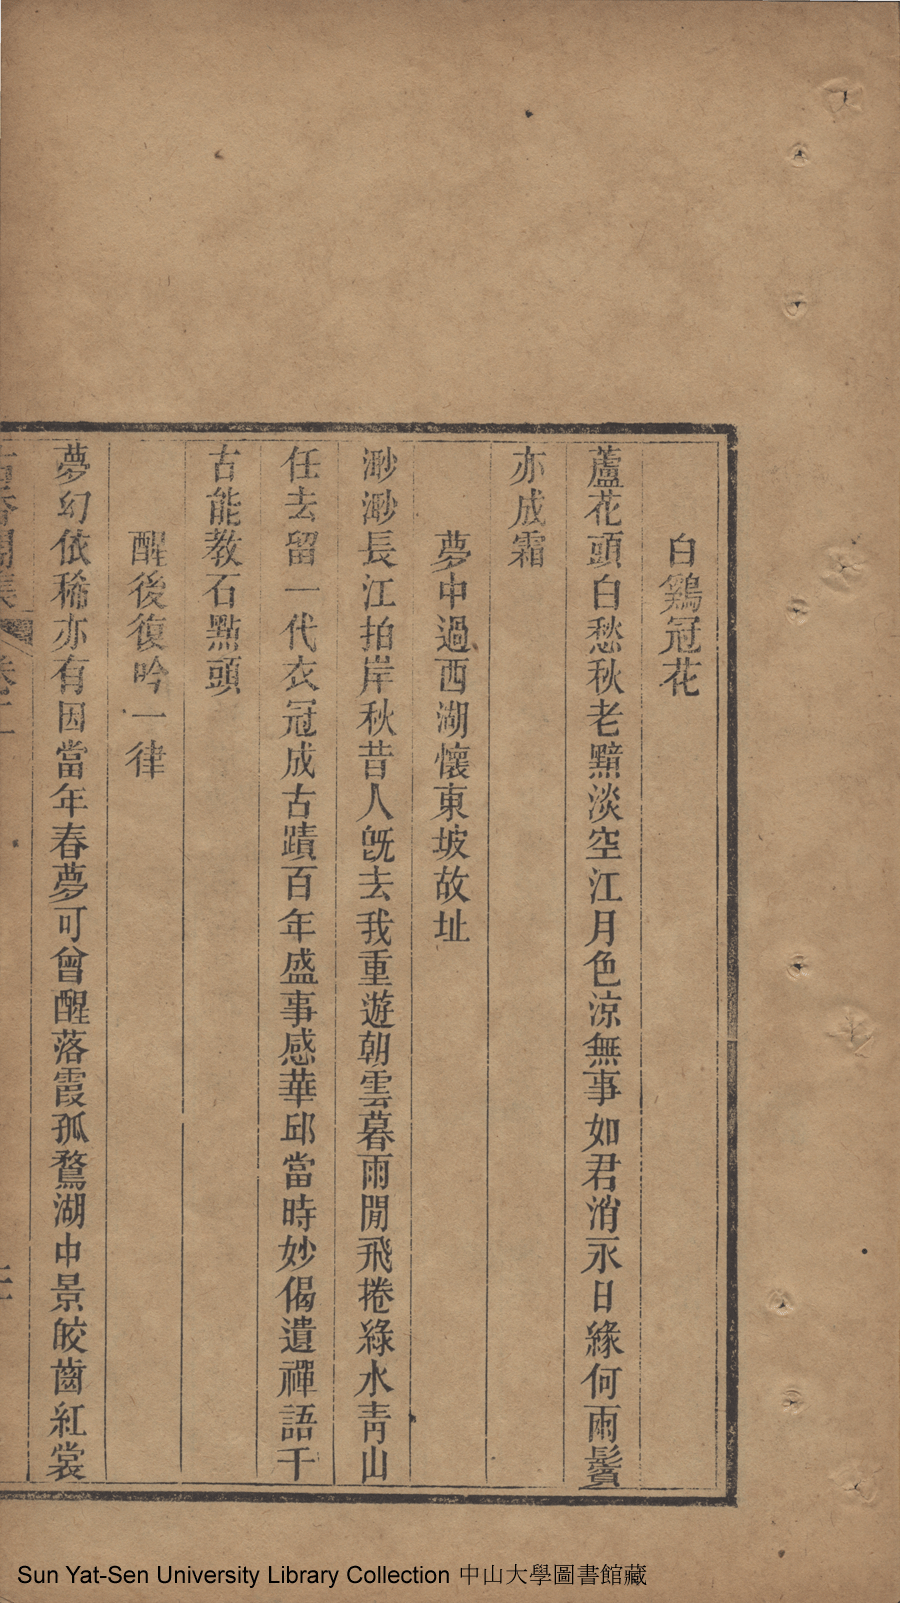 白鷄冠花
蘆花頭白愁秋老黯淡空江月色涼無事如君消永日緣何雨鬢
亦成霜
夢中過西湖懷東坡故址
渺渺長江拍岸秋昔人旣去我重遊朝雲暮雨閒飛捲綠水靑山
任去留一代衣冠成古蹟百年盛事感華邱當時妙偈遺禪語千
古能教石點頭
醒後復吟一律
夢幻依稀亦有因當年春夢可曾醒落霞孤鶩湖中景皎齒紅裳
卷二
Sun Yat-Sen University Library Collection 中山大學圖書館藏